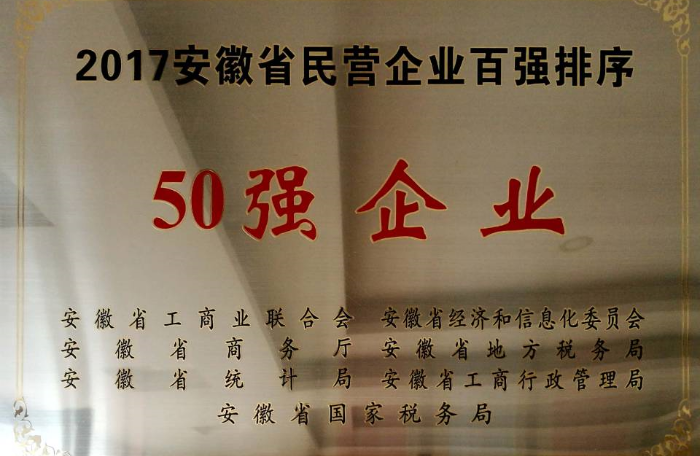 2017安徽省民营企业百强排序
50强企业
安徽省工商业联合会 安徽省经济和信息化委员会
安徽省商务厅 安徽省地方税务局
安徽省统计局 安徽省工商行政管理局
安徽省国家税务局